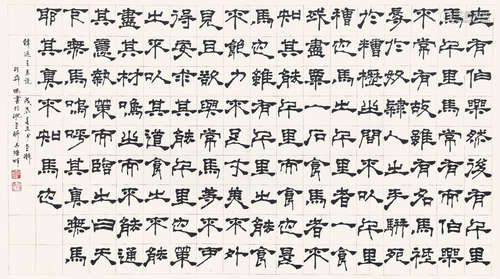 世有伯樂然後有千里
馬千里馬常有而伯樂
不常有故雖有名馬祗
辱於奴隸人之手駢死
於槽櫪之間不以千里
稱也馬之千里者一食
或盡粟一石食馬者不
知其能千里而食也是
馬也雖有千里之能食
不飽力不足才美不外
見且欲與常馬等不可
得安求其能千里也策
之不以其道食之不能
盡其材鳴之而不能通
其意執策而臨之曰天
下無馬嗚呼其真無馬
耶其真不知馬也
韓退之馬說